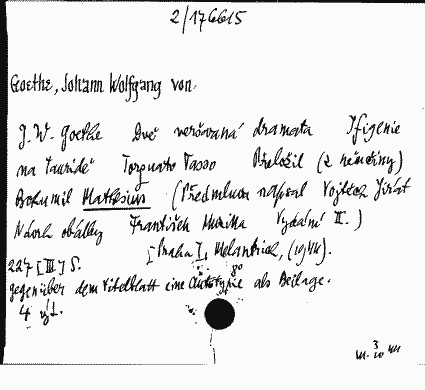 2/176615
Goethe, Johann Wolfgang von.
J. W. Goethe Dvě veršovaná dramata Ifigenie
na Tauridě Torquato Tasso Přeložil (z němčiny)
Bohumil Mathesius (Předmluvu napsal Vojtěch Jirát
Návrh obálky František Muzika Vydání II.)
[Praha I, Melantrich, (1944).
227 [III] S. 8°
gegenüber dem Titelblatt eine Autotypie als Beilage.